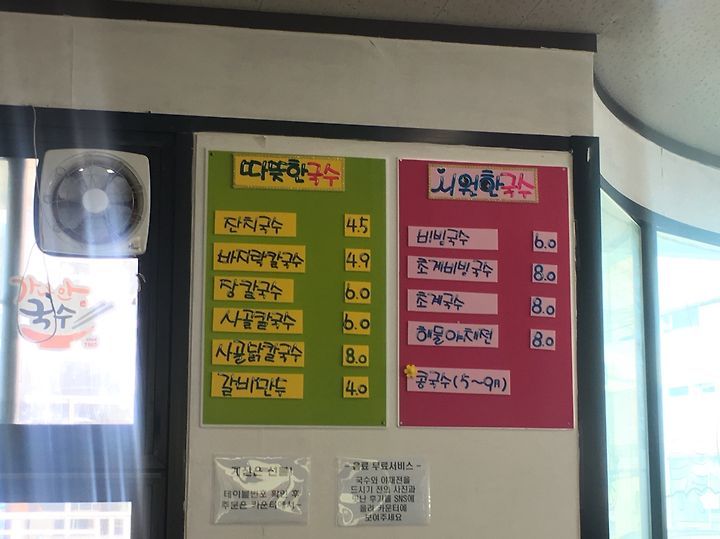 따뜻한국수
잔치국수 4.5
바지락칼국수 4.9
장칼국수 6.0
사골칼국수 6.0
사골닭칼국수 8.0
갈비만두 4.0
시원한국수
비빔국수 6.0
초계비빔국수 8.0
초계국수 8.0
해물야채전 8.0
콩국수(5~9월)
국수
테이블번호 확인 후
주문은 카운터에서~
- 음료 무료서비스 -
국수와 야채전을
드시기 전의 사진과
후기를 SNS에
올려 카운터에
보여주세요